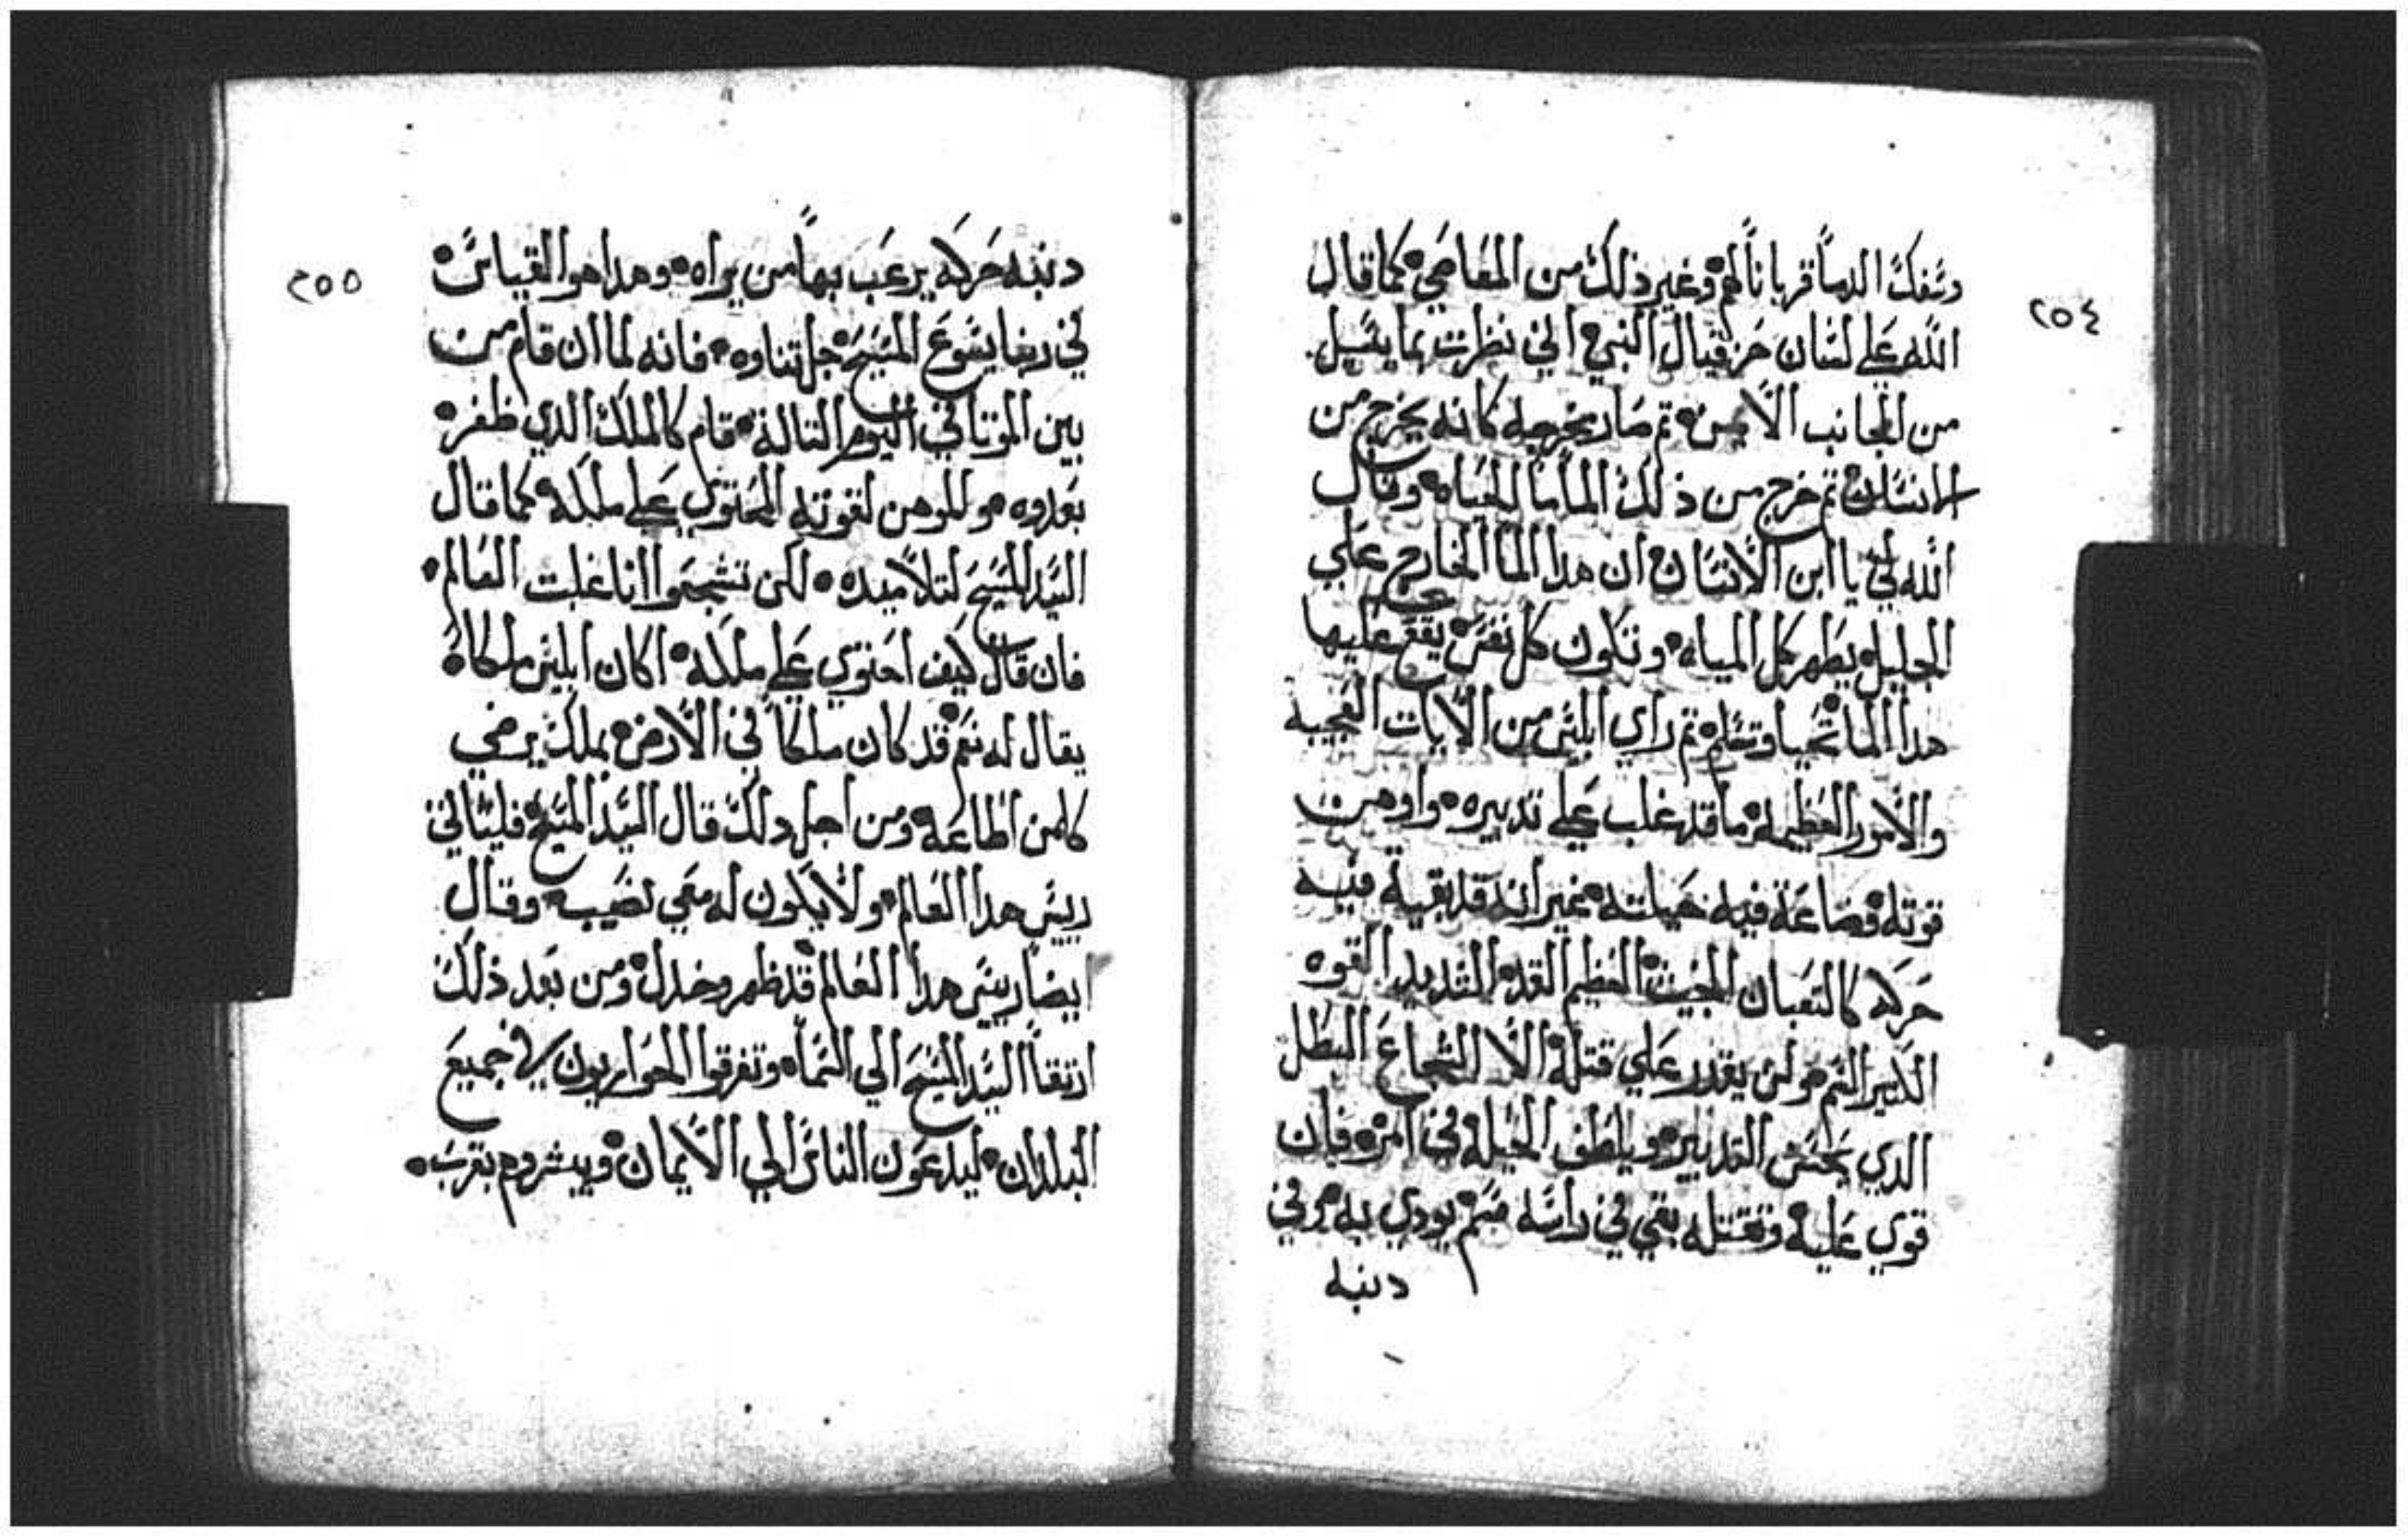 ٢٥٤
وسفك الدما قربانا لهم وغير ذلك من المعاصي كما قال
الله علي لسان حزقيال النبي اني نظرت بما يسيل
من الجانب الايمن تم صار بخروجه كانه يخرج من
الانسان تم خرج من ذلك الما مثال المياه وقال
الله لي يا ابن الانسان ان هدا الما الخارج علي
الجليل يطهر كل المياه وتكون كل نفس يقع عليها
هدا الما تحيا وتسلم تم راي ابليس من الايات العجيبه
والامور العظيمه ما قد غلب علي تدبيره واوهن
قوته وضاعة فيه حيلته غير انه قد بقية فيه
حركه كالتعبان الخبيت العظيم القد الشديد القوه
الكبير السم هو لن يقدر علي قتله الا الشجاع البطل
الدي يحسن التدبير ويلطف الحيله في امره فان
قوي عليه وقتله بقي في راسه سم يودي به وفي
دنبه
٢٥٥
دنبه حركه يرعب بها من يراه وهدا هو القياس
في ربنا يسوع المسيح جل تناوه فانه لما ان قام من
بين الموتا في اليوم التالت قام كالملك الدي ظفر
بعدوه هو للوهن لقوته المحتوي علي ملكه كما قال
السيد المسيح لتلاميده لكن تشجعوا انا غلبت العالم
فان قال كيف احتوي علي ملكه اكان ابليس ملكاه
يقال له نعم قد كان ملكا في الارض بملك يرضي
كلمن اطاعه ومن اجل دلك قال السيد المسيح فليتاتي
رييس هدا العالم ولا يكون له معي نصيب وقال
ايضا رييس هدا العالم قد ظهر وخدل ومن بعد ذلك
ارتقا السيد المسيح الي السماه وتفرقوا الحواريون في جميع
البلدان ليدعون الناس الي الايمان ويبشروهم بقرب